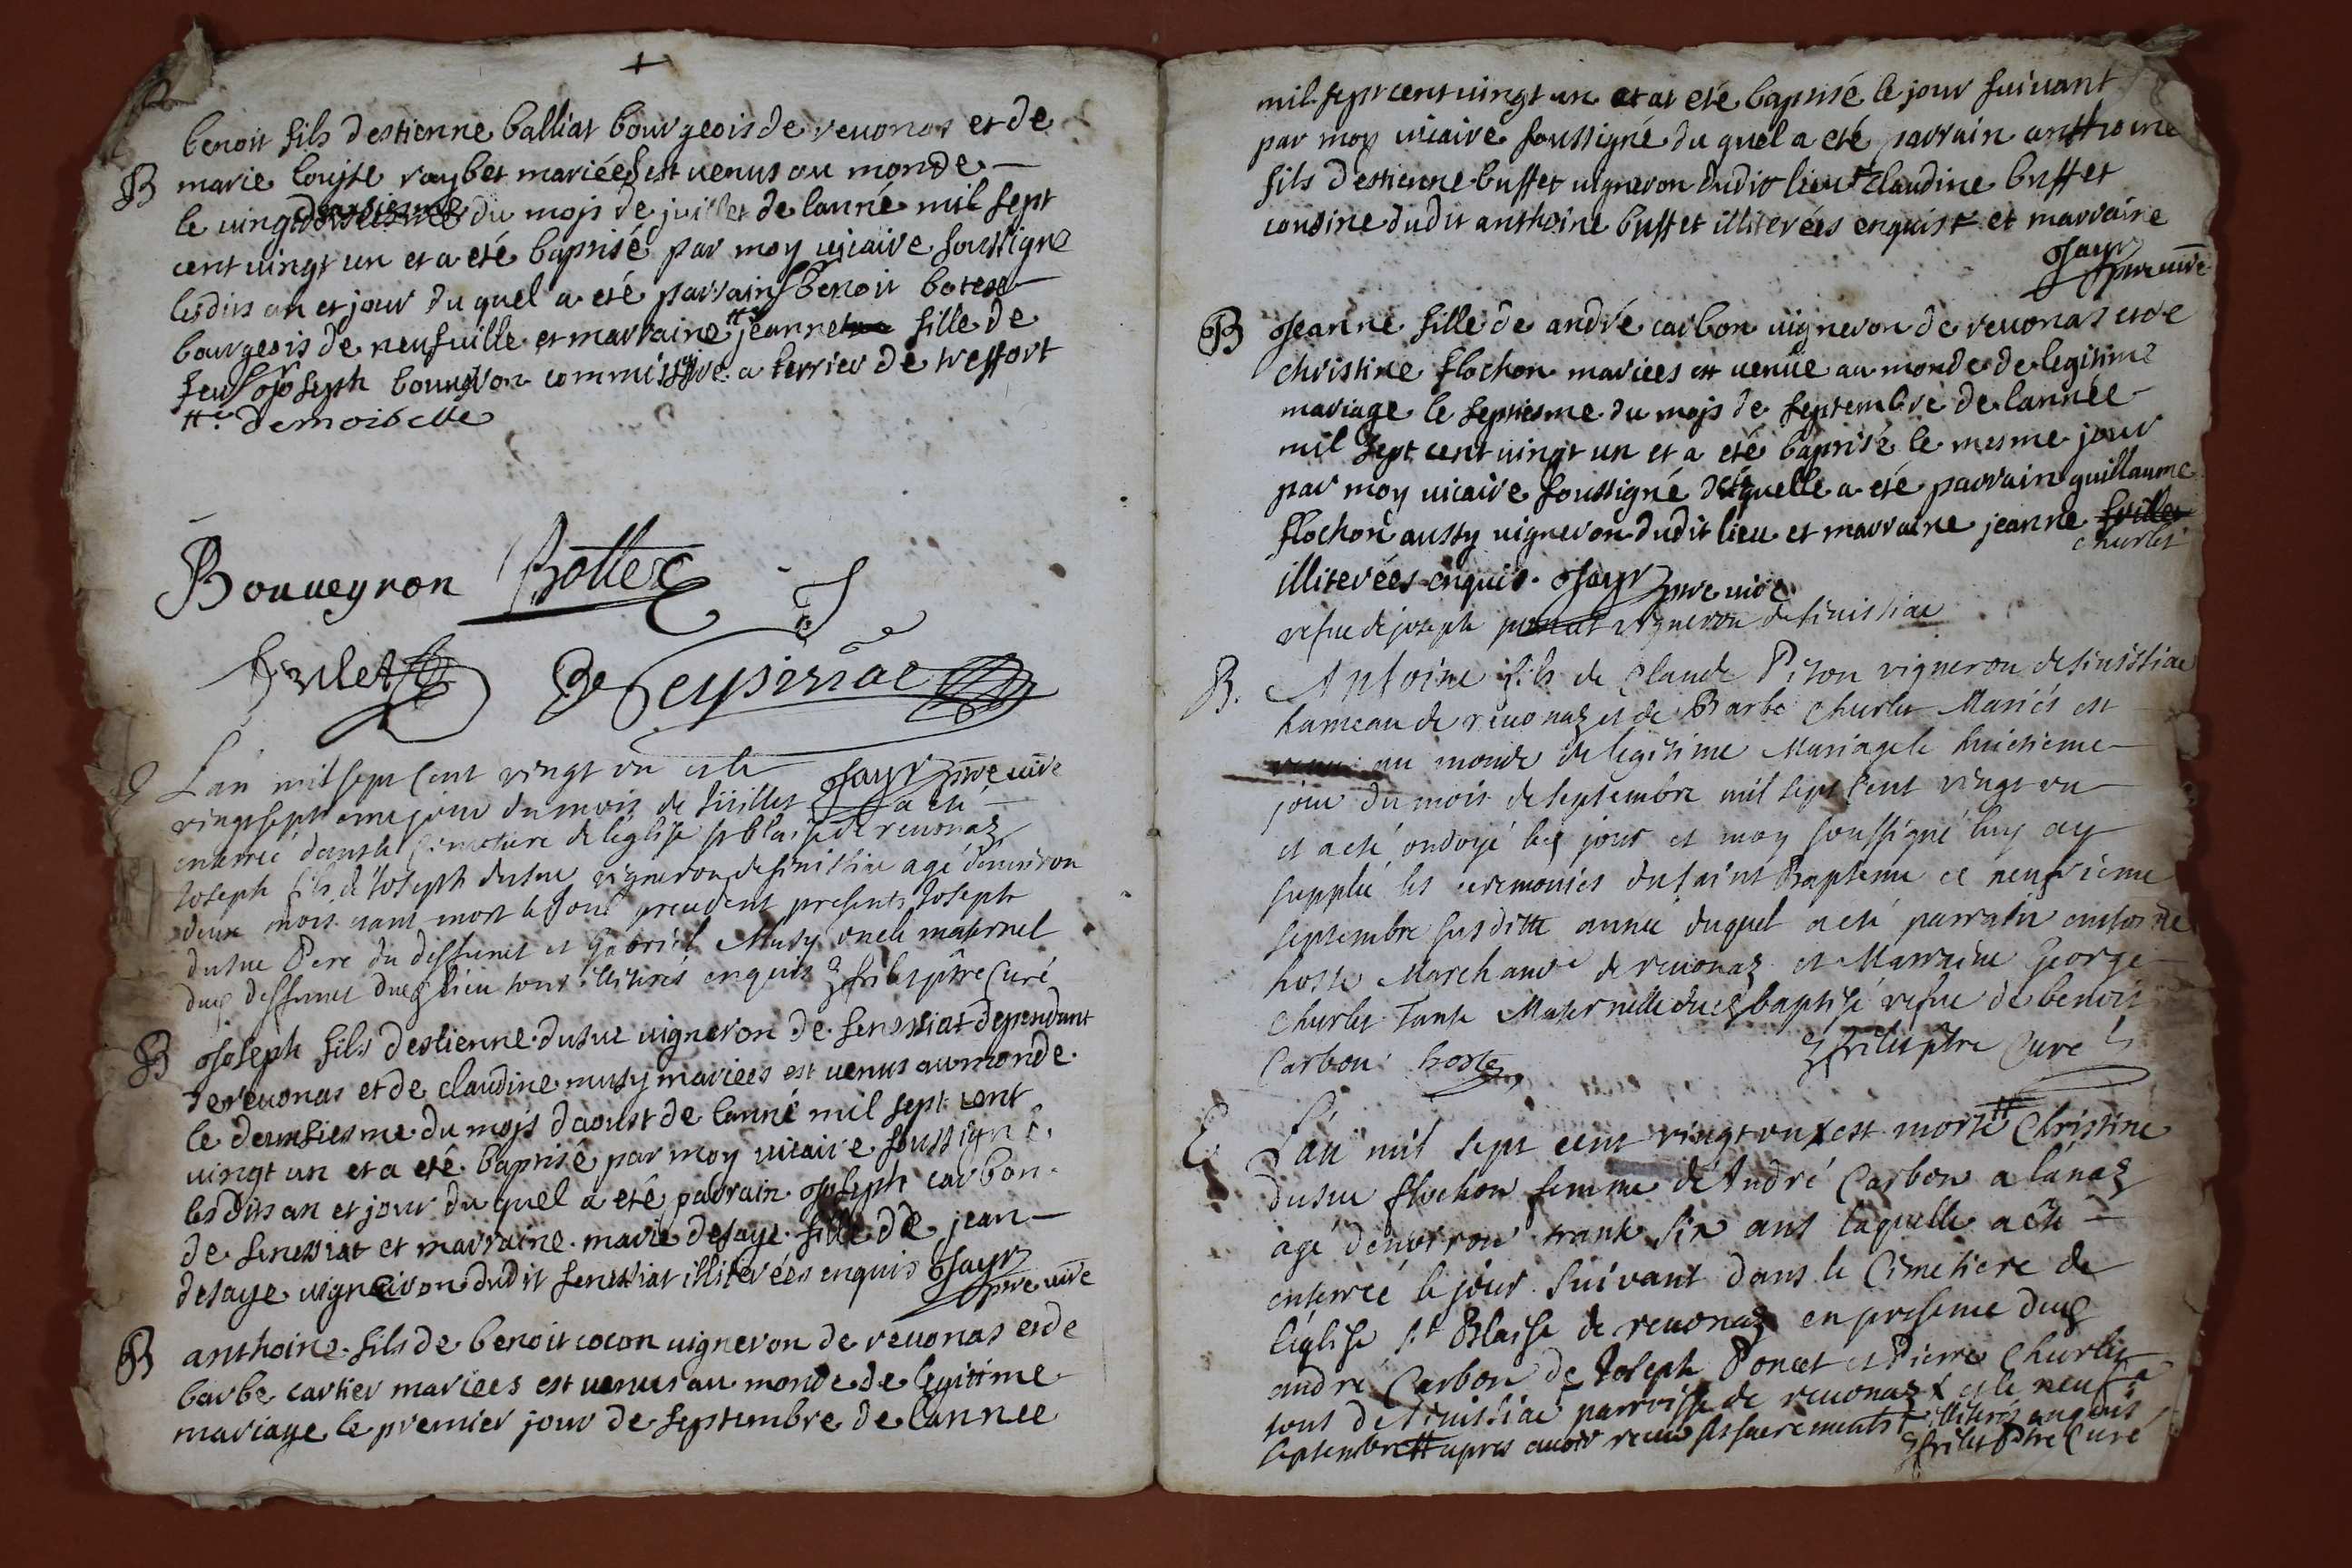 benoit fils destienne balliat bourgeois de reuonas et de
B marie louise raybet mariées est uenus au monde
le uingt deuxiesme du mois de juillet de lanné mil sept
cent uingt un et a eté baptisé par moy uicaire soussigné
lesdits an et jour du quel a eté parrain Sr benoit botex
bourgeois de neufuille et marraine tt jeanne fille de
feu Sr joseph commissaire a terrier de treffort
tte demoiselle
Bouueyron Bottex
frilet De Seyssiriae
E L'an mil sept cent vingt un et le jayr ptre uire
vingt septieme jour du mois de Juillet a eté
enterré dans le Cimetiere de leglise st blaise de reuonaz
Joseph fils de Joseph dusue vigneron de sinissiac agé denuiron
deux mois etant mort le jour precedent presents Joseph
dusue Pere du deffunct et Gabriel Musy oncle maternel
dud deffunct dud lieu tous illiterés enquis frilet ptre Curé
B joseph fils destienne dusue uigneron de senissiat dependant
de reuonas et de claudine musy mariees est uenus au monde
le deuxsiesme du mojs daoust de lanné mil sept cent
uingt un et a eté baptisé par moy uicaire soussigné
lesdits an et jour du quel a eté parrain joseph carbon
de senissiat et marraine marie desaye fille de jean
desaye uigneron dudit senissiat illiterées enquis jayr
ptre uire
B anthoine fils de benoit cocon uigneron de reuonas et de
barbe cartier mariees est uenus au monde de legitime
mariage le premier jour de septembre de lannee
mil sept cent uingt un et at eté baptisé le jour suiuant
par moy uicaire soussigné du quel a eté parrain anthoine
fils destienne buffet uigneron dudit lieu et claudine buffet
cousine dudit anthoine buffet illiterées enquist et marraine
jayr
ptre uire
B jeanne fille de andré carbon uigneron de reuonas et de
christine flochon mariees est uenüe au monde de legitime
mariage le septiesme du mojs de septembre de lannée
mil sept cent uingt un et a eté baptisé le mesme jour
par moy uicaire soussigné de laquelle a eté parrain guillaume
flochon aussy uigneron dudit lieu et marraine jeanne
churlet
illiterées enquis jayr ptre uire
vefue de joseph poncet vigneron de sinissiac
B. Antoine fils de Claude Piton vigneron de sinissiac
hameau de reuonaz et de Barbe Churlet Mariés est
venu au monde de legitime Mariage le huictieme
jour du mois de septembre mil sept cent vingt un
et a eté ondoyé led jour et moy soussigné luy ay
supplée les ceremonies du saint Bapteme ce neufvieme
septembre susditte année duquel a eté parrain antoine
hoste Marchand de reuonaz et Marraine George
Churlet Tante Maternelle dud baptisé vefue de benoit
Carbon hoste frilet ptre Curé
E. L'an mil sept cent vingt un x est morte tt Christine
dusue flochon femme d'André Carbon a lánaz
agé denuiron trente six ans laquelle a eté
enterrée le jour suivant dans le Cimetiere de
léglise st Blaise de reuonaz en presence dud
andré Carbon de Joseph Poncet et Pierre Churlet
tous de sinissiac parroisse de reuonaz x et le neuf
septembre tt apres auoir receu ses sacrements illiterés enquis
frilet Ptre Curé